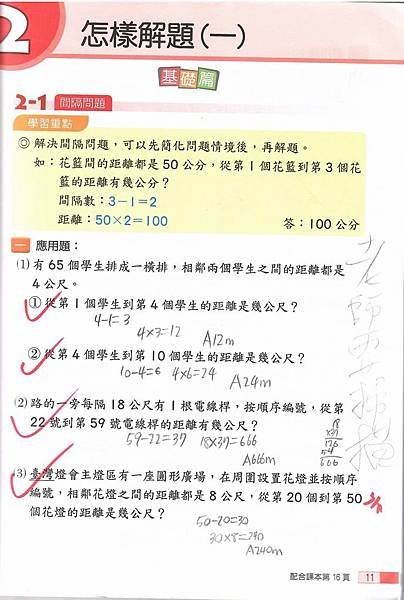 2 怎樣解題(一)
基礎篇
2-1 間隔問題
學習重點
◎解決間隔問題,可以先簡化問題情境後,再解題。
如:花籃間的距離都是50公分,從第1個花籃到第3個花
籃的距離有幾公分?
間隔數:3-1=2
距離:50×2=100 答:100公分
一 應用題:
(1)有65個學生排成一橫排,相鄰兩個學生之間的距離都是
4公尺。
①從第1個學生到第4個學生的距離是幾公尺?
4-1=3
4×3=12 A12m
②從第4個學生到第10個學生的距離是幾公尺?
10-4=6 4×6=24 A24m
(2)路的一旁每隔18公尺有1根電線桿,按順序編號,從第
22號到第59號電線桿的距離有幾公尺?
59-22=37 18×37=666
A666m
18
×37
126
54
666
(3)臺灣燈會主燈區有一座圓形廣場,在周圍設置花燈並按順序
編號,相鄰花燈之間的距離都是8公尺,從第20個到第50
個花燈的距離是幾公尺?
50-20=30
30×8=240
A240m
老師要掃描
配合課本第16頁 11